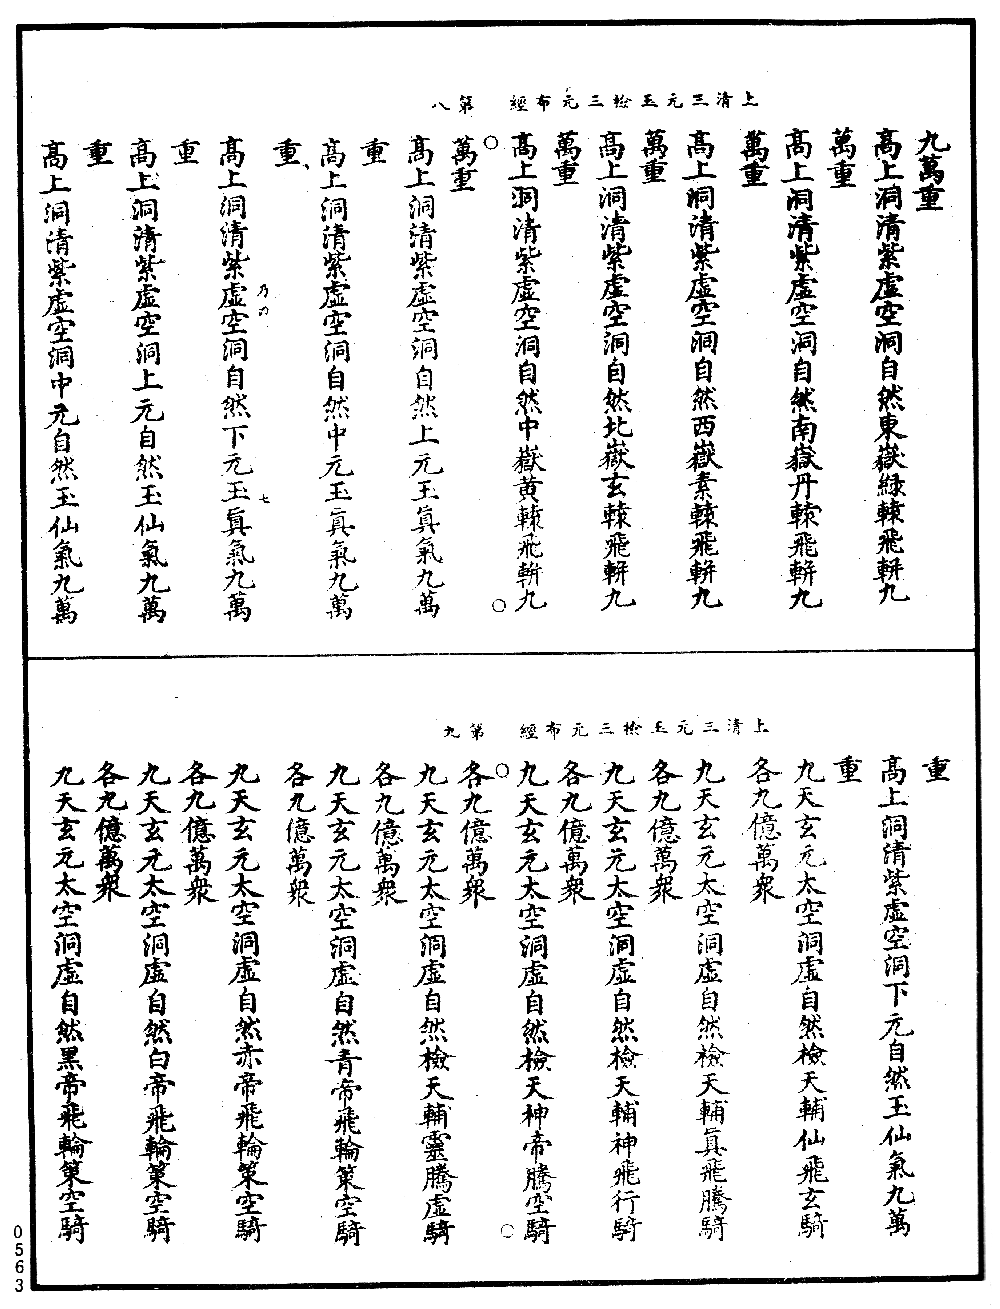 上清三元玉檢三元布經　第八
九萬重
高上洞清紫虛空洞自然東嶽綠轅飛軿九
萬重
高上洞清紫虛空洞自然南嶽丹轅飛軿九
萬重
高上洞清紫虛空洞自然西嶽素轅飛軿九
萬重
高上洞清紫虛空洞自然北嶽玄轅飛軿九
萬重
高上洞清紫虛空洞自然中嶽黃轅飛軿九
萬重
高上洞清紫虛空洞自然上元玉眞氣九萬
重
高上洞清紫虛空洞自然中元玉眞氣九萬
重
七
高上洞清紫虛空洞自然下元玉眞氣九萬
重
高上洞清紫虛空洞上元自然玉仙氣九萬
重
高上洞清紫虛空洞中元自然玉仙氣九萬
上清三元玉檢三元布經　第九
重
高上洞清紫虛空洞下元自然玉仙氣九萬
重
九天玄元太空洞虛自然檢天輔仙飛玄騎
各九億萬衆
九天玄元太空洞虛自然檢天輔眞飛騰騎
各九億萬衆
九天玄元太空洞虛自然檢天輔神飛行騎
各九億萬衆
九天玄元太空洞虛自然檢天神帝騰空騎
各九億萬衆
九天玄元太空洞虛自然檢天輔靈騰虛騎
各九億萬衆
九天玄元太空洞虛自然青帝飛輪策空騎
各九億萬衆
九天玄元太空洞虛自然赤帝飛輪策空騎
各九億萬衆
九天玄元太空洞虛自然白帝飛輪策空騎
各九億萬衆
九天玄元太空洞虛自然黑帝飛輪策空騎
0563